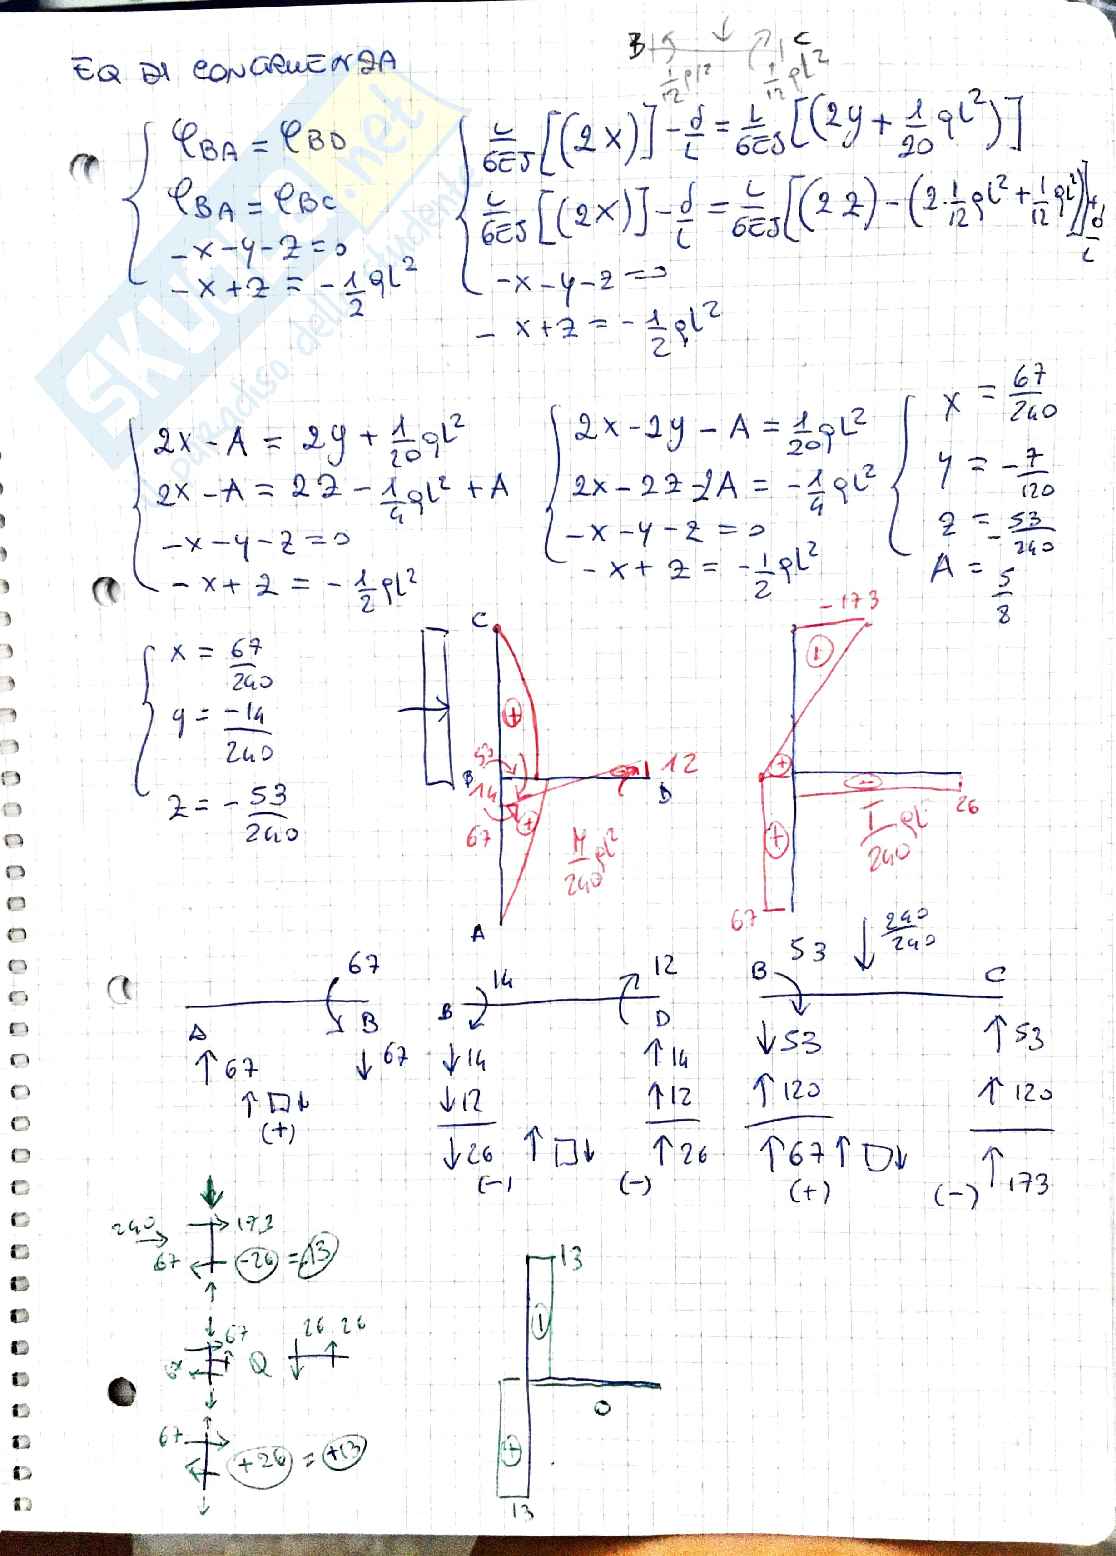 B C
1/12 ql² 1/12 ql²
EQ DI CONGRUENZA
φBA = φBD
φBA = φBC
-x-y-z=0
-x+z = -1/2 ql²
L/6EJ [(2x)] - d/L = L/6EJ [(2y + 1/20 ql²)]
L/6EJ [(2x)] - d/L = L/6EJ [(2z) - (2·1/12 ql² + 1/12 ql²)] + d/L
-x-y-z=0
-x+z = -1/2 ql²
2x-A = 2y + 1/20 ql²
2x-A = 2z - 1/4 ql² + A
-x-y-z=0
-x+z = -1/2 ql²
2x-2y-A = 1/20 ql²
2x-2z-2A = -1/4 ql²
-x-y-z=0
-x+z = -1/2 ql²
x = 67/240
y = -7/120
z = -53/240
A = 5/8
x = 67/240
y = -14/240
z = -53/240
C
+
53
B
14
67
+
12
D
A
M/240 ql²
-173
-
+
-
+
26
T/240 ql
67
67
A B
↑67 ↓67
↑□↓
(+)
14 12
B D
↓14 ↑14
↓12 ↑12
↓26 ↑□↓ ↑26
(-) (-)
53 ↓ 240/240
B C
↓53 ↑53
↑120 ↑120
↑67 ↑□↓ ↑173
(+) (-)
240 → 173
67 ← -26 = -13
67 26 26
67
67 +26 = +13
13
-
0
+
13
SKUOLA.net
il paradiso dello studente